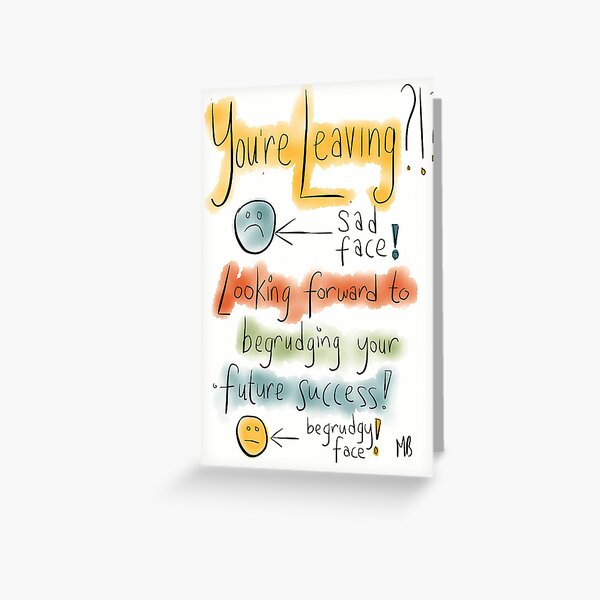 You're Leaving?!!
sad
face!
Looking forward to
begrudging your
future success!
begrudgy!
face
MB